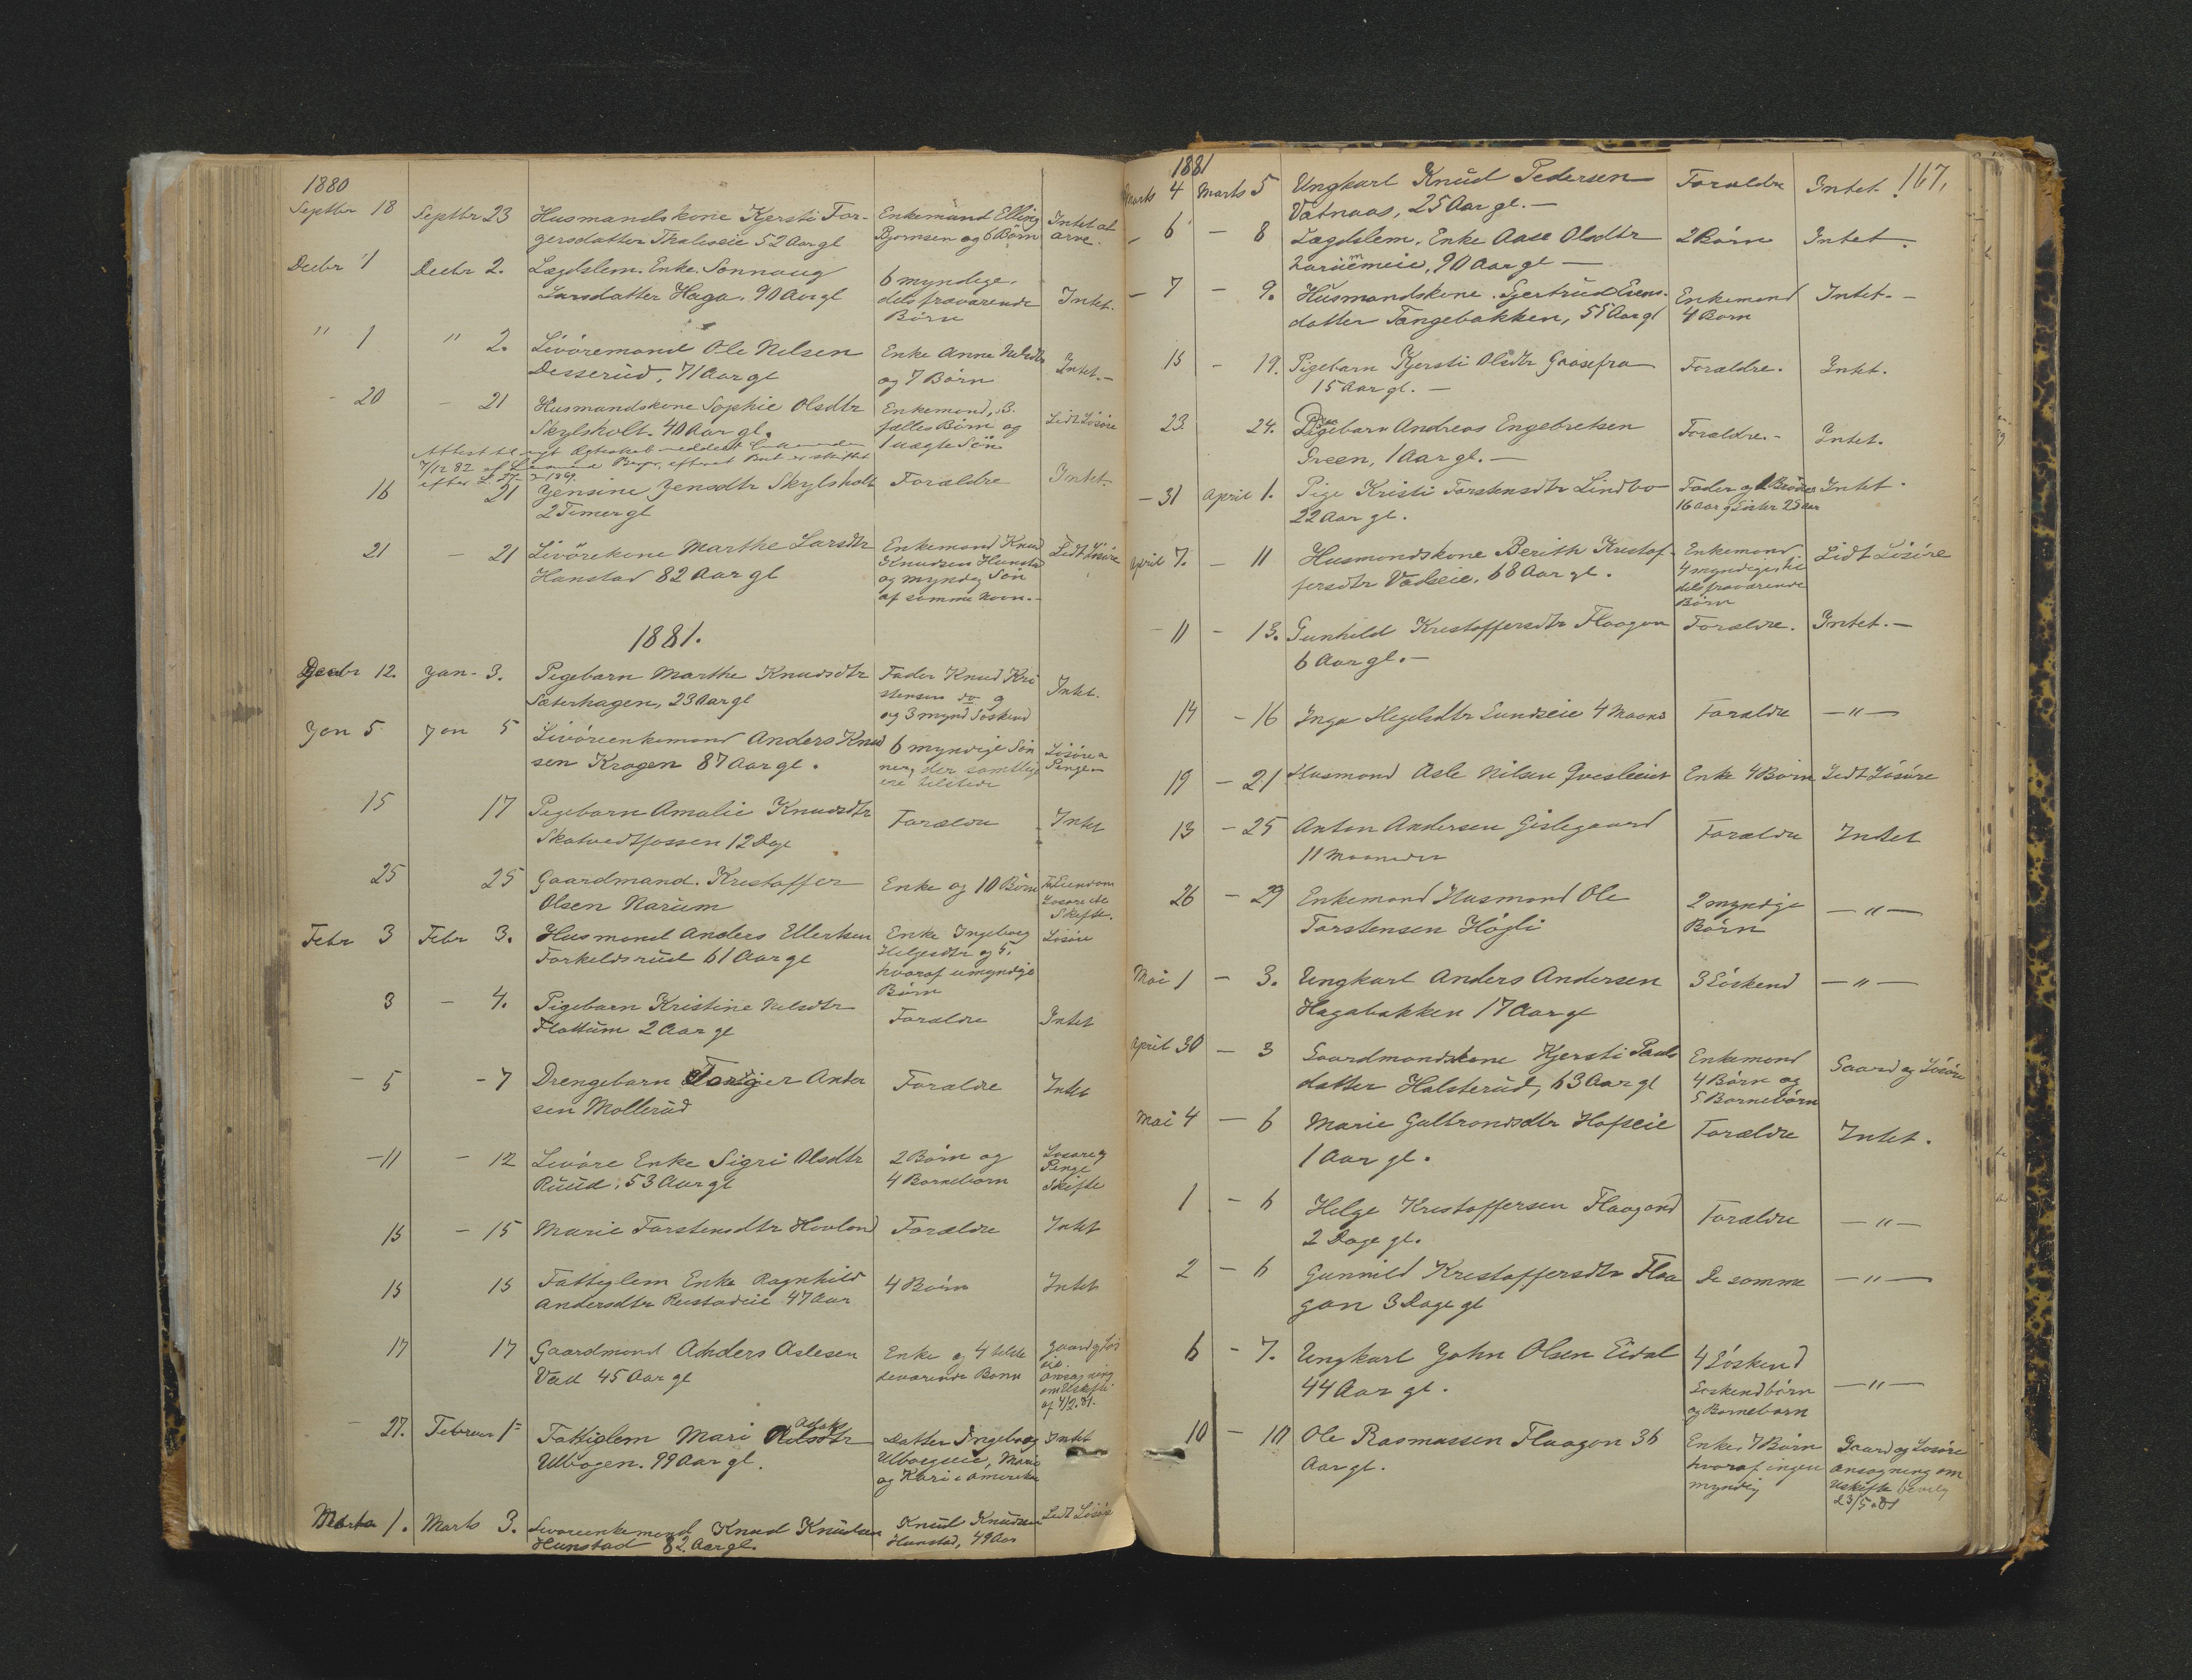 1880
Septbr 18 Septbr 23 Husmandskone Kjersti Tor- Enkemand Elling Intet at
gersdatter Thaleseie 52 Aar gl Bjornsen og 6 Børn arve.
Decbr 1 Decbr 2. Lægdslem. Enke. Sonnaug 6 myndige,
Larsdatter Haga. 90 Aar gl dels fraværende Intet.
Børn
" 1 " 2. Livøremand Ole Nilsen Enke Anne Nilsdtr
Desserud, 71 Aar gl og 7 Børn Intet.-
- 20 - 21 Husmandskone Sophie Olsdtr Enkemand, 3 Lidt Løsøre
Skylsholt. 40 Aar gl. fælles Børn og
1 uægte Søn
7/12 82 af
efter L 1869.
16 21 Jensine Jensdtr Skylsholt Forældre Intet
2 Timer gl
21 - 21 Livørekone Marthe Larsdtr Enkemand Knud Lidt Løsøre
Hanstad 82 Aar gl Knudsen Hunstad
og myndig Søn
af samme Navn.-
1881.
Decbr 12. Jan- 3. Pigebarn Marthe Knudsdtr Fader Knud Kri
Sæterhagen, 23 Aar gl stensen do og Intet.
og 3 mynd Søskend
Jan 5 Jan 5 Livøreenkemand Anders Knud 6 myndige Søn Løsøre
sen Kragen 87 Aar gl. ner, der samtlige Penge
ere tilstede
15 17 Pigebarn Amalie Knudsdtr Forældre Intet
Skatvedtfossen 12 Dage
25 25 Gaardmand. Kristoffer Enke og 10 Børn Eiendom
Olsen Narum Løsøre
Skifte.
Febr 3 Febr 3. Husmand Anders Ellertsen Enke Ingeborg Løsøre
Torkeldsrud 61 Aar gl Helgesdtr og 5,
hvoraf umyndige
Børn
3 - 4. Pigebarn Kristine Nilsdtr Forældre Intet
Flattum 2 Aar gl
- 5 - 7 Drengebarn Torger Ander Forældre Intet
sen Mollerud
- 11 - 12 Livøre Enke Sigri Olsdtr 2 Børn og Løsøre og
Ruud, 53 Aar gl 4 Børnebørn Penge
Skifte
15 - 15 Marie Torstensdtr Hovland Forældre Intet
15 15 Fattiglem Enke Ragnhild 4 Børn Intet
Andersdtr Rustadeie 47 Aar
17 17 Gaardmand Anders Aslesen Enke og 4 tilste Gaard og Løs
Vad 45 Aar gl deværende Børn øre.
Ansøgning
om Uskifte
af 4/2.81.
- 27. Februar 1- Fattiglem Mari Aslaks Datter Ingeborg Intet
Ulbogen. 99 Aar gl. Ulbogeie, Marie
og Kari i Amerika
Marts 1. Marts 3. Livøreenkemand Knud Knudsen Knud Knudsen Lidt Løsøre
Hunstad 82 Aar gl. Hunstad, 49 Aar
1881 167.
Marts 4 Marts 5 Ungkarl Knud Pedersen Forældre Intet
Vatnaas, 25 Aar gl.-
- 6 - 8 Lægdslem, Enke Aase Olsdtr 2 Børn Intet.
90 Aar gl -
- 7 - 9. Husmandskone. Gjertrud Evens- Enkemand Intet.-
datter Tangebakken, 55 Aar gl 4 Børn
15 - 19. Pigebarn Kjersti Olsdtr Gaasefra Forældre. Intet.
15 Aar gl.-
23 24. Pigebarn Andreas Engebretsen Forældre.- Intet.
Green, 1 Aar gl.-
- 31 April 1. Pige Kristi Torstensdtr Lindbo Fader og 1 Broder Intet.
22 Aar gl. 16 Aar og Søster 25 Aar
April 7. - 11 Husmandskone Berith Kristof- Enkemand Lidt Løsøre
fersdtr Vadseie, 68 Aar gl. 4 myndige
dels fraværende
Børn
- 11 - 13. Gunhild Kristoffersdtr Flaagan Forældre. Intet.-
6 Aar gl.-
14 - 16 Inga Hegelsdtr Sundseie 4 Maane Forældre -"-
19 - 21 Husmand Asle Nilsen Gvesleeiet Enke 4 Børn Lidt Løsøre
13 - 25 Anton Andersen Gislegaard Forældre Intet
11 Maaneder
26 - 29 Enkemand Husmand Ole 2 myndige -"-
Torstensen Høgli Børn
Mai 1 - 3. Ungkarl Anders Andersen 3 Søskend -"-
Hagabakken 17 Aar gl
April 30 - 3 Gaardmandskone Kjersti Pauls Enkemand Gaard og Løsøre
datter Halsterud, 63 Aar gl 4 Børn og
5 Børnebørn
Mai 4 - 6 Marie Gulbrandsdtr Hafseie Forældre Intet.
1 Aar gl.
1 - 6 Helge Kristoffersen Flaagand Forældre -"-
2 Dage gl.
2 - 6 Gunnild Kristoffersdtr Flaa De samme -"-
gan 3 Dage gl
6 - 7. Ungkarl John Olsen Eidal 4 Søskend
44 Aar gl. Søskendbørn -"-
og Børnebørn
10 - 10 Ole Rasmussen Flaagan 36 Enke, 7 Børn Gaard og Løsøre
Aar gl. hvoraf ingen Ansøgning om
myndig Uskifte bevilg
23/5.81